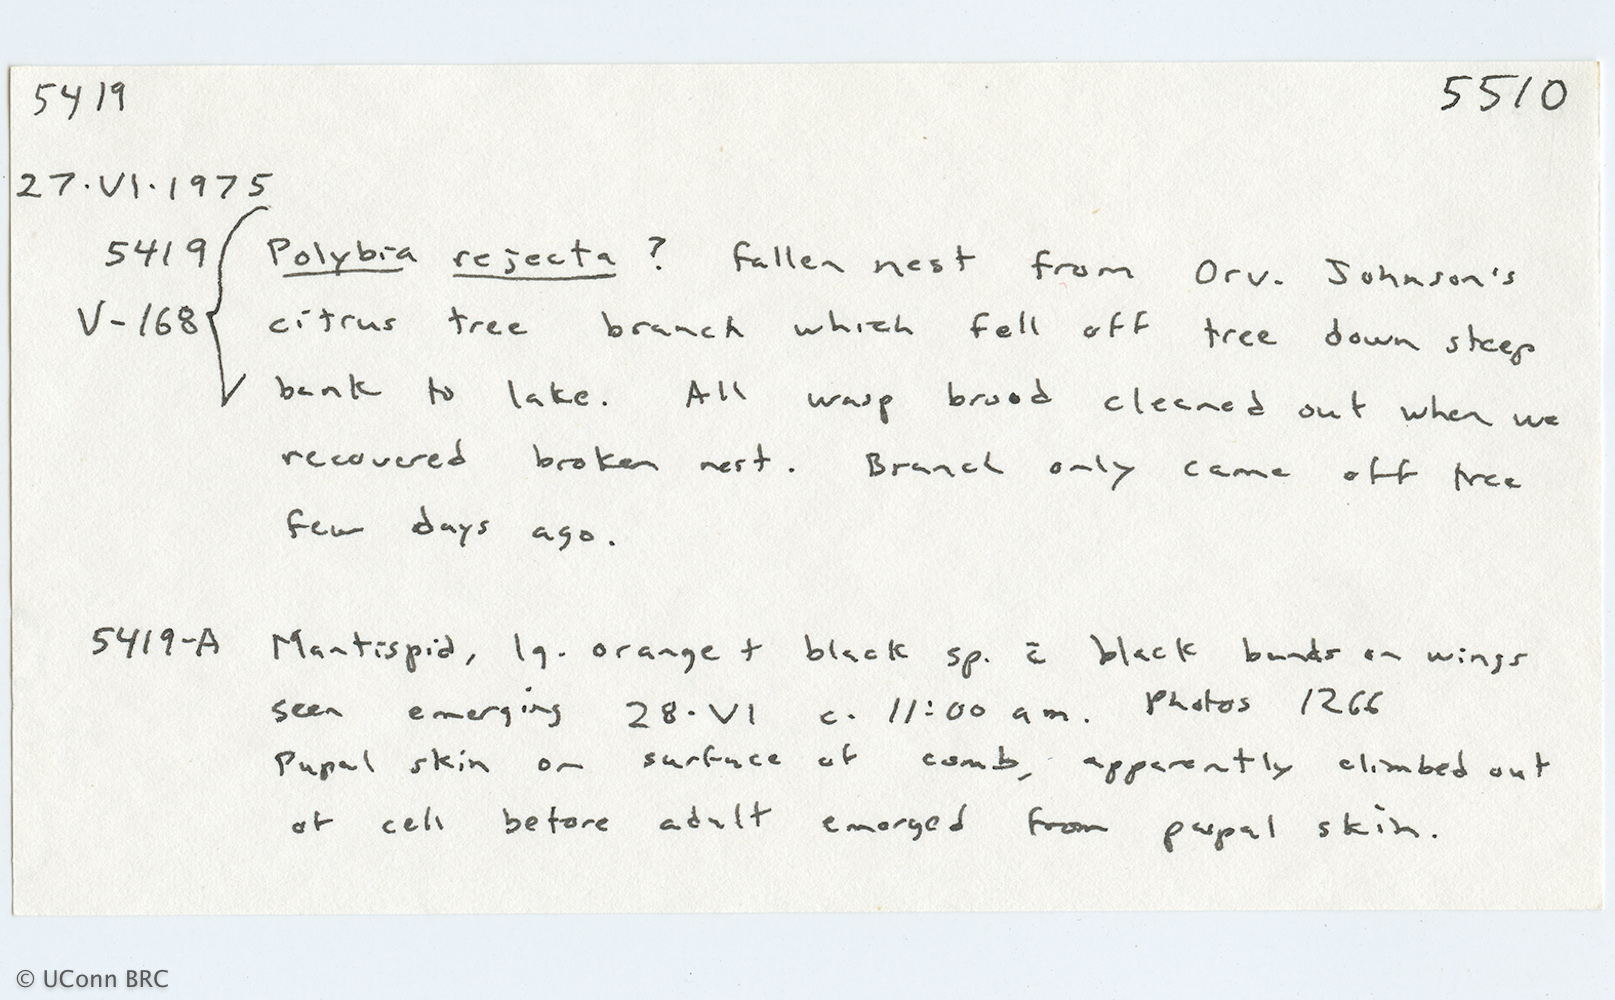 5419 5510
27·VI·1975
5419 Polybia rejecta? Fallen nest from Orv. Johnson's
V-168 citrus tree branch which fell off tree down steep
bank to lake. All wasp brood cleaned out when we
recovered broken nest. Branch only came off tree
few days ago.
5419-A Mantispid, lg. orange + black sp. c̄ black bands on wings
seen emerging 28·VI c. 11:00 am. Photos 1266
Pupal skin on surface of comb, apparently climbed out
of cell before adult emerged from pupal skin.
© UConn BRC